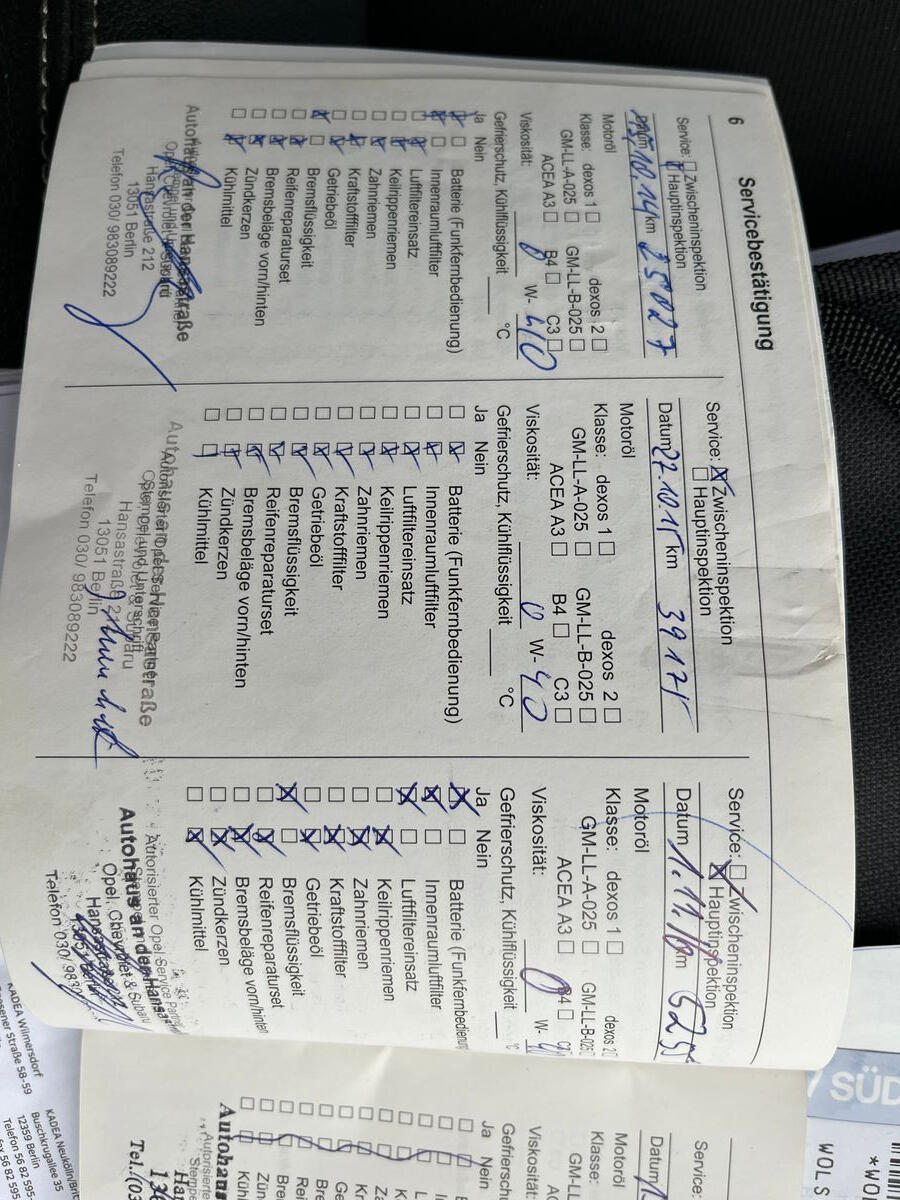 6
Servicebestätigung
Service: Zwischeninspektion
Hauptinspektion
Datum 13.10.14 km 25027
Motoröl
Klasse: dexos 1 dexos 2
GM-LL-A-025 GM-LL-B-025
ACEA A3 B4 C3
Viskosität: 0 W- 40
Gefrierschutz, Kühlflüssigkeit °C
Ja Nein
Batterie (Funkfernbedienung)
Innenraumluftfilter
Luftfiltereinsatz
Keilrippenriemen
Zahnriemen
Kraftstofffilter
Getriebeöl
Bremsflüssigkeit
Reifenreparaturset
Bremsbeläge vorn/hinten
Zündkerzen
Kühlmittel
Autohaus an der Hansastraße
Hansastraße 212
13051 Berlin
Telefon 030/ 983089222
Service: Zwischeninspektion
Hauptinspektion
Datum 27.10.15 km 39175
Motoröl
Klasse: dexos 1 dexos 2
GM-LL-A-025 GM-LL-B-025
ACEA A3 B4 C3
Viskosität: 0 W- 40
Gefrierschutz, Kühlflüssigkeit °C
Ja Nein
Batterie (Funkfernbedienung)
Innenraumluftfilter
Luftfiltereinsatz
Keilrippenriemen
Zahnriemen
Kraftstofffilter
Getriebeöl
Bremsflüssigkeit
Reifenreparaturset
Bremsbeläge vorn/hinten
Zündkerzen
Kühlmittel
Stempel und Unterschrift
Hansastraße
13051 Berlin
Telefon 030/ 983089222
Service: Zwischeninspektion
Hauptinspektion
Datum 1.11.16 km
Motoröl
Klasse: dexos 1 dexos 2
GM-LL-A-025 GM-LL-B-025
ACEA A3 B4
Viskosität: 0 W-
Gefrierschutz, Kühlflüssigkeit °C
Ja Nein
Batterie (Funkfernbedienun
Innenraumluftfilter
Luftfiltereinsatz
Keilrippenriemen
Zahnriemen
Kraftstofffilter
Getriebeöl
Bremsflüssigkeit
Reifenreparaturset
Bremsbeläge vorn/hinten
Zündkerzen
Kühlmittel
Autorisierter Opel Service Partner
Autohaus an der Hansa
Opel, Chevrolet & Subaru
Telefon 030/ 9830
Service:
Datum
Motoröl
Klasse:
GM-LL
AC
Viskosität:
Gefriersch
Ja Nein
Autohaus
Tel.:(03
KADEA Wilmersdorf
ener Straße 58-59
KADEA Neukölln/Brit
Buschkrugallee 35
12359 Berlin
Telefon 56 82 595-
ax 56 82 595
SÜD
*WOL
WOLS